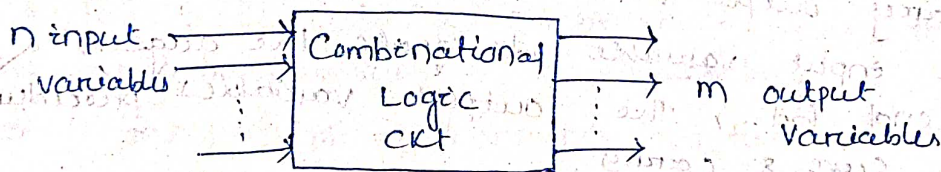 n input
variables
Combinational
Logic
CKt
m output
variables